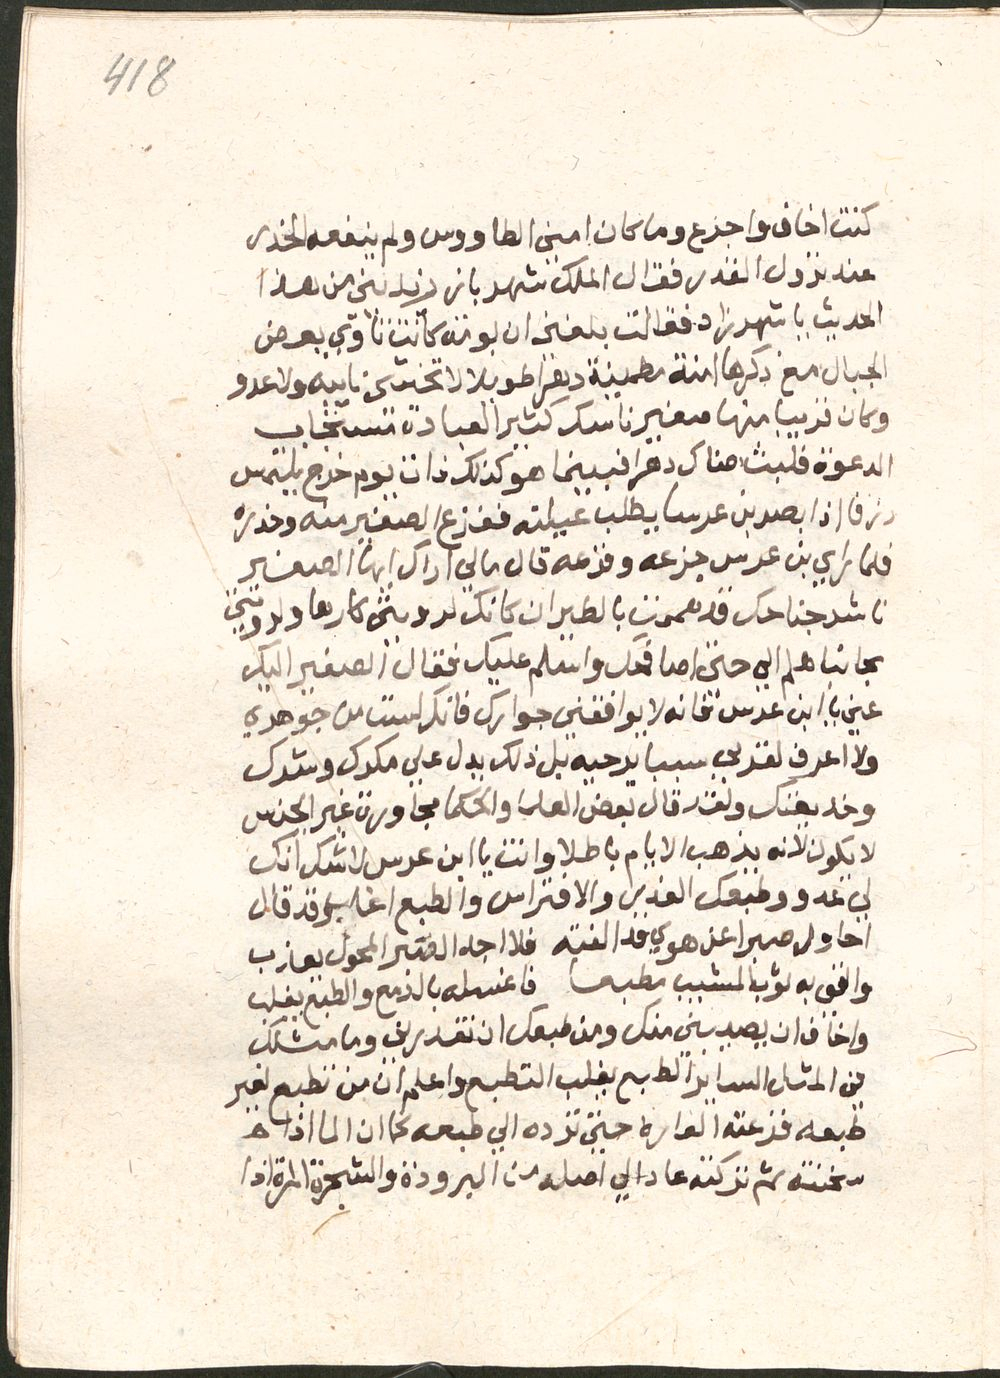 418
كنت اخاف واجزع وما كان امني الطاووس ولم ينفعه الحذر
عند نزول القدر فقال الملك شهرباز زيديني من هذا
الحديث يا شهرزاد فقالت بلغني ان بومه كانت تاوي بعض
الجبال مع ذكرها امنة مطمينة دهرا طويلا لا تخشى نايبه ولا عدو
وكان قريبا منها صغير ناسك كثير العبادة مستجاب
الدعوة فلبث هناك دهرا فبينما هو كذلك ذات يوم خرج يلتمس
رزقا اذا بصر بن عرس يطلب عيلته ففزع الصغير منه وحذره
فلما راي بن عرس جزعه وفزعه قال مالي اراك ايها الصغير
ناشر جناحك قد هممت بالطيران كانك لرويتي كارها ولدويتي
مجانبا هلم الي حتى اصافحك واسلم عليك فقال الصغير اليك
عني يا ابن عرس فانه لا يوافقني جوارك فانك لست من جوهري
ولا اعرف لقربي سببا ترجيه بل ذلك يدل علي مكرك وشرك
وخديعتك ولقد قال بعض العلما والحكما مجاورة غير الجنس
لا يكون لانه يذهب الايام باطلا وانت يا ابن عرس لا شك انك
لي عدو وطبعك الغدر والافتراس والطبع اغلب وقد قال
احاول صبرا عن هوي قد الفته فلا اجد الصبر المحول يعازب
وافق به ثوب المشيب مطبعا فاغسله بالدمع والطبع يغلب
واخاف ان يصيبني منك ومن طبعك ان تغدر بي وما مثلك
من المثل الساير الطبع يغلب التطبع واعلم ان من تطبع لغير
طبعه فزعته العاره حتى ترده الي طبعه كما ان الما اذا
سخنته ثم تركته عاد الي اصله من البرودة والشجرة المرة اذا